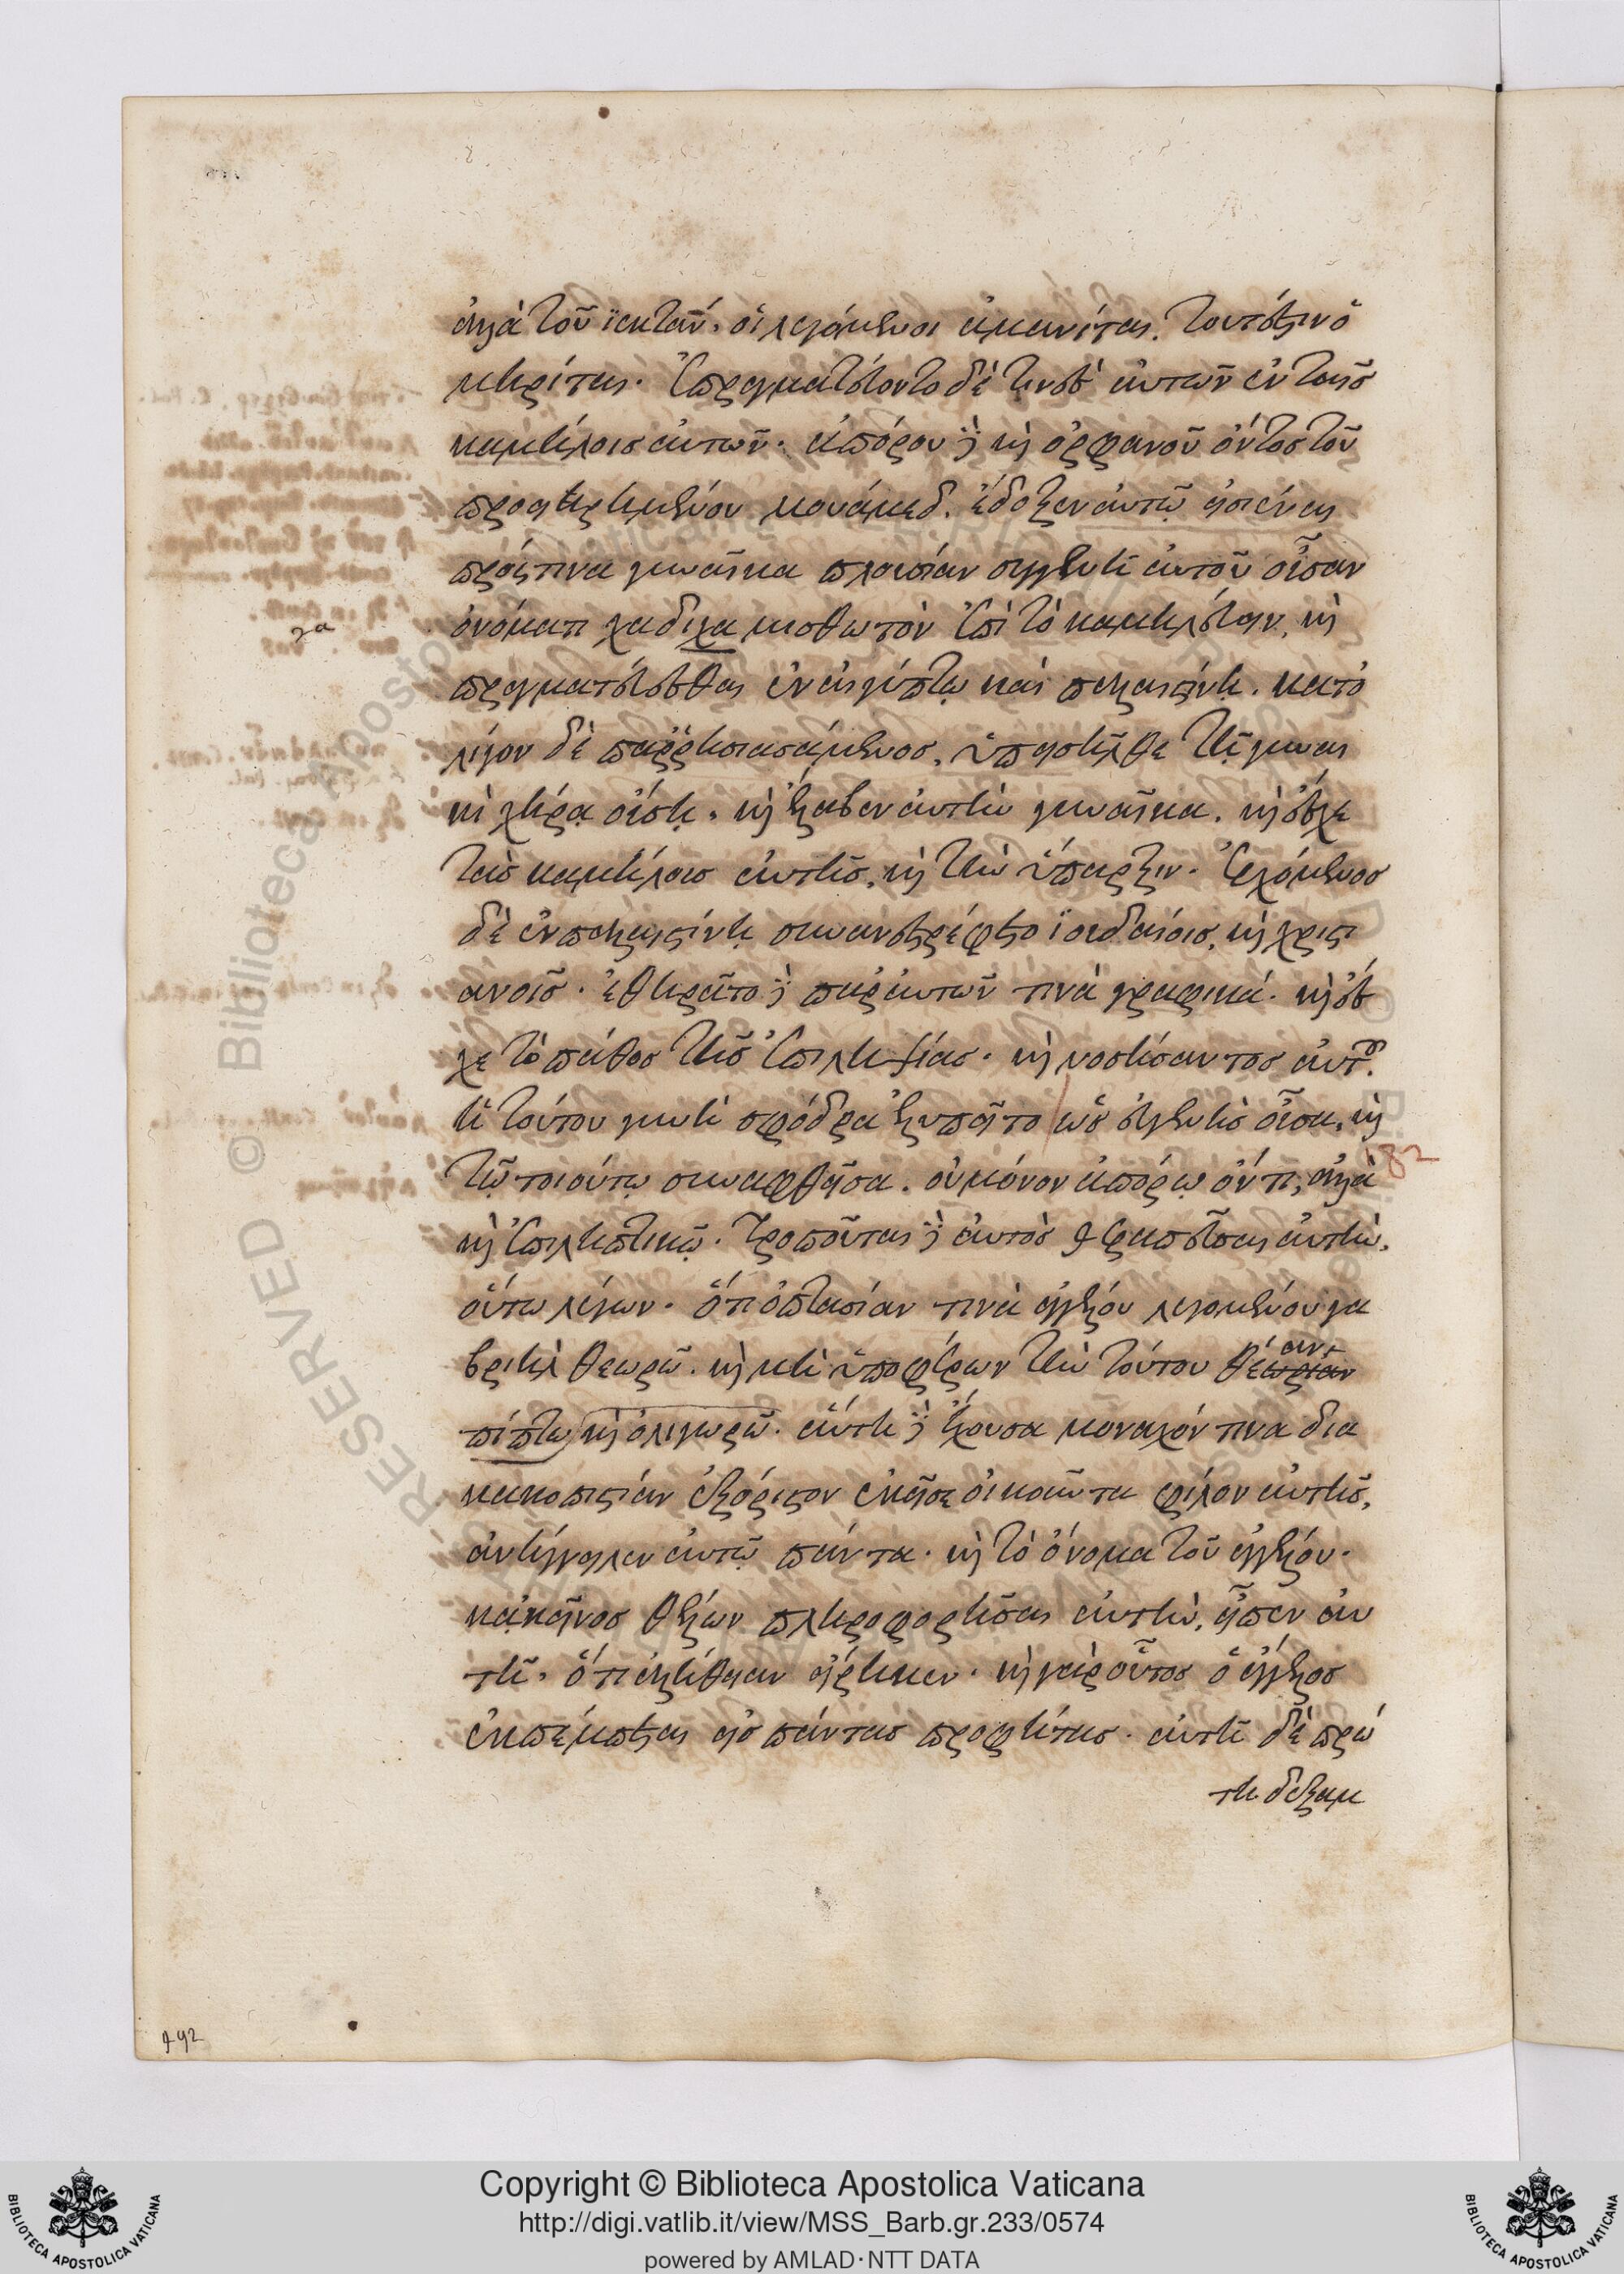 ἀλλὰ τοῦ ἰεκτὰν. οἱ λεγόμενοι ἀμανίται. τουτέστιν ὁ
μηρίται. ἐπραγματεύοντο δέ τινες αὐτῶν ἐν ταῖς
καμήλοις αὐτῶν. ἀπόρου δὲ καὶ ὀρφανοῦ ὄντος τοῦ
προειρημένου μουάμεδ. ἔδοξεν αὐτῷ εἰσιέναι
πρός τινα γυναῖκα πλουσίαν συγγενῆ αὐτοῦ οὖσαν
ὀνόματι χαδιχα μισθωτὸν ἐπὶ τὸ καμηλεύειν, καὶ
γα
πραγματεύεσθαι ἐν αἰγύπτῳ καὶ παλαιστίνῃ. κατ ὀ
λίγον δὲ παῤῥησιασάμενος, ὑπεισῆλθε τῇ γυναι
κὶ χήρᾳ οὔσῃ. καὶ ἔλαβεν αὐτὴν γυναῖκα. καὶ ἔσχε
τὰς καμήλους αὐτῆς, καὶ τὴν ὕπαρξιν. ἐρχόμενος
δὲ ἐν παλαιστίνῃ συνανεστρέφετο ἰουδαίοις, καὶ χριστι
ανοῖς. ἐθηρᾶτο δὲ παρ αὐτῶν τινὰ γραφικά. καὶ ἔσ
χε τὸ πάθος τῆς ἐπιληψίας. καὶ νοήσαντος αὐτοῦ.
ἡ τούτου γυνὴ σφόδρα ἐλυπεῖτο ὡς εὐγενὴς οὖσα, καὶ
τῷ τοιούτῳ συναφθεῖσα. οὐ μόνον ἀπόρῳ ὄντι, ἀλλὰ
182
καὶ ἐπιληπτικῷ. τροποῦται δὲ αὐτὸς θεραπεῦσαι αὐτὴν,
οὕτω λέγων. ὅτι ὀπτασίαν τινὰ ἀγγέλου λεγομένου γα
βριὴλ θεωρῶ. καὶ μὴ ὑποφέρων τὴν τούτου θεωρίαν
αν
πίπτω καὶ ὀλιγωρῶ. αὕτη δὲ ἔχουσα μοναχόν τινα δια
κακοπιστίαν ἐξόριστον ἐκεῖσε οἰκοῦντα φίλον αὐτῆς,
ἀνήγγειλεν αὐτῷ πάντα. καὶ τὸ ὄνομα τοῦ ἀγγέλου.
κἀκεῖνος θέλων πληροφορῆσαι αὐτὴν, εἶπεν αὐ
τῇ. ὅτι ἀλήθειαν εἴρηκεν. καὶ γὰρ οὗτος ὁ ἄγγελος
ἐκπέμπεται εἰς πάντας προφήτας. αὐτὴ δὲ πρώ
τη δεξαμ
992
Copyright © Biblioteca Apostolica Vaticana
http://digi.vatlib.it/view/MSS_Barb.gr.233/0574
powered by AMLAD·NTT DATA
BIBLIOTECA APOSTOLICA VATICANA
BIBLIOTECA APOSTOLICA VATICANA